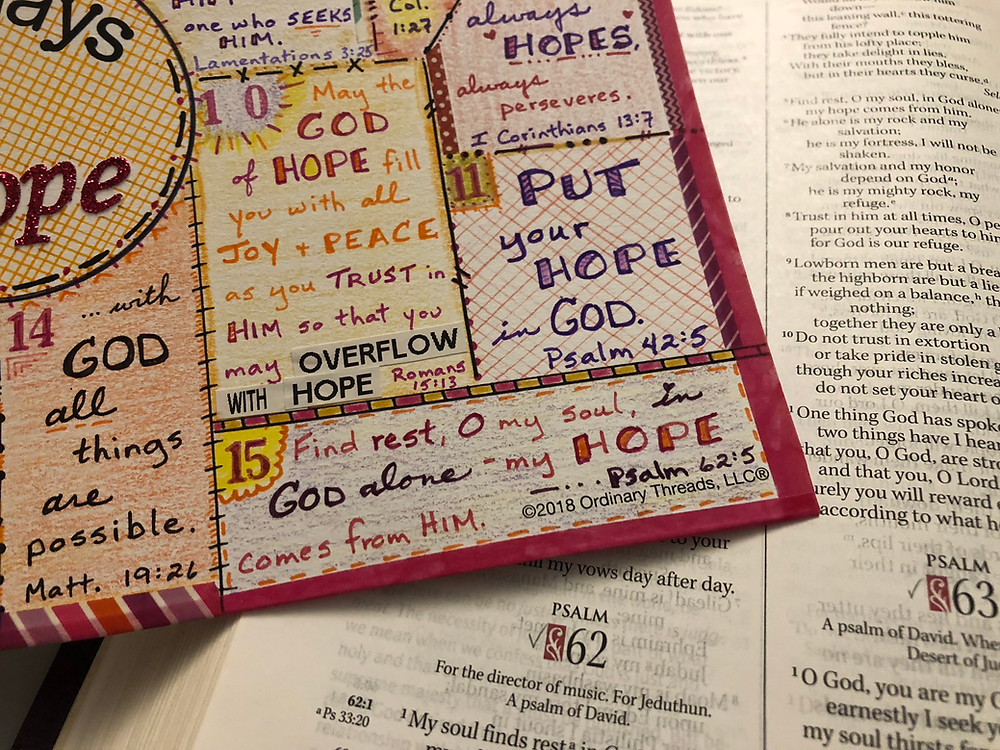 one who SEEKS
HIM.
Lamentations 3:25
Col.
1:27
always
HOPES,
always
perseveres.
I Corinthians 13:7
10
May the
GOD
of HOPE fill
you with all
JOY + PEACE
as you TRUST in
HIM so that you
may OVERFLOW
WITH HOPE
Romans
15:13
11
PUT
your
HOPE
in GOD.
Psalm 42:5
14
...with
GOD
all
things
are
possible.
Matt. 19:26
15
Find rest, O my soul, in
GOD alone - my HOPE
comes from HIM.
Psalm 62:5
©2018 Ordinary Threads, LLC®
my vows day after day.
PSALM
62
For the director of music. For Jeduthun.
A psalm of David.
62:1
a Ps 33:20
1 My soul finds rest a in
this leaning wall, this tottering
fence?
They fully intend to topple him
from his lofty place;
they take delight in lies.
With their mouths they bless,
but in their hearts they curse.
Find rest, O my soul, in God alone
my hope comes from him.
He alone is my rock and my
salvation;
he is my fortress, I will not be
shaken.
7 My salvation and my honor
depend on God;
he is my mighty rock, my
refuge.
8 Trust in him at all times, O
pour out your hearts to
for God is our refuge.
9 Lowborn men are but a
the highborn are but a
if weighed on a balance, h
nothing;
together they are only a
10 Do not trust in extortion
or take pride in stolen
though your riches
do not set your heart
One thing God has
two things have I
that you, O God, are
and that you, O Lord
you will reward
according to what
PSALM
63
A psalm of David.
Desert of
1 O God, you are my
earnestly I seek
my soul thirsts